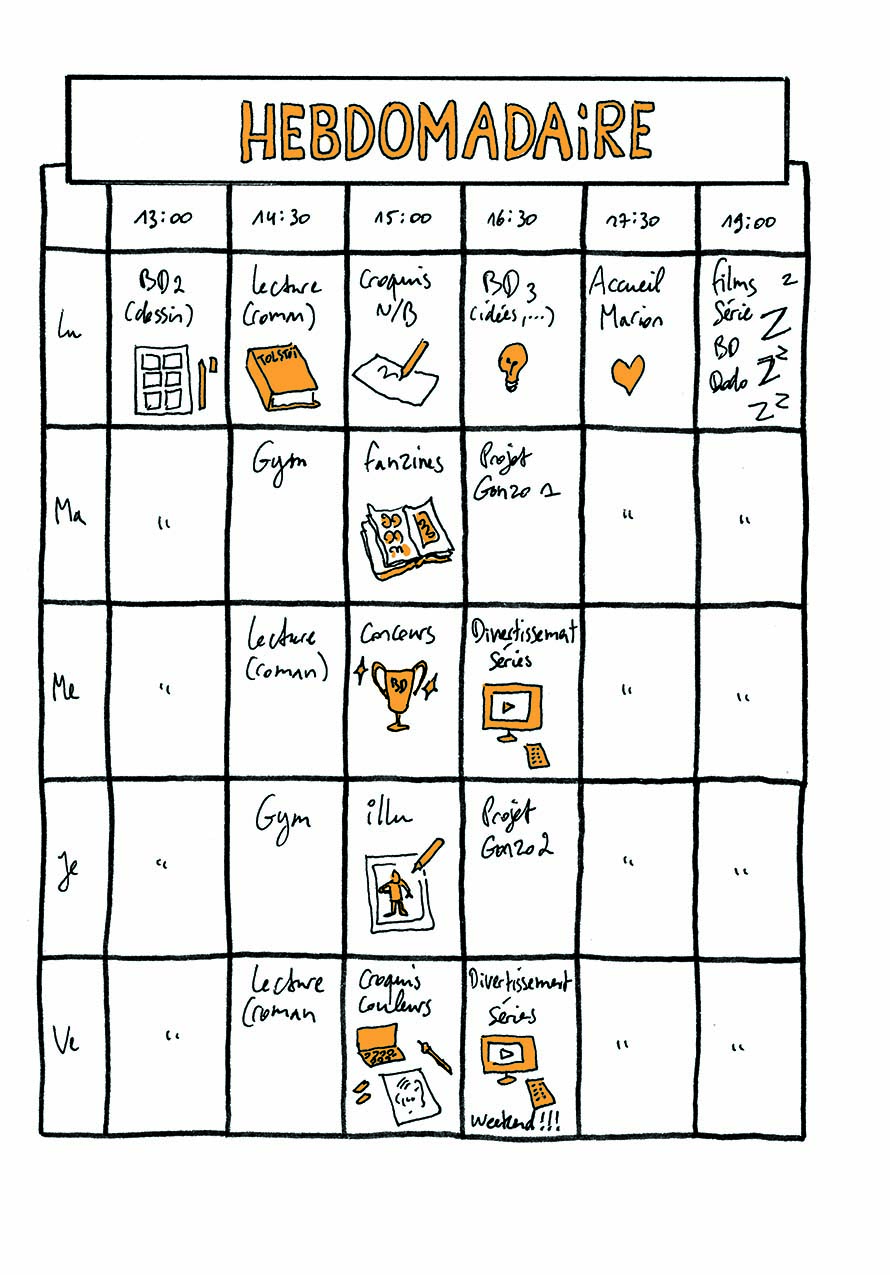 HEBDOMADAiRE
13:00 14:30 15:00 16:30 17:30 19:00
Lu
BD2
(dessin)
Lecture
(roman)
TOLSTOÏ
Croquis
N/B
BD3
(idées,...)
Accueil
Marion
Films
Série
BD
Dodo
z
Z
Zz
Zz
Ma
"
Gym
Fanzines
Projet
Gonzo 1
"
"
Me
"
Lecture
(roman)
Concours
BD
Divertissement
Séries
"
"
Je
"
Gym
illu
Projet
Gonzo 2
"
"
Ve
"
Lecture
(roman
Croquis
couleurs
Divertissement
Séries
weekend!!!
"
"